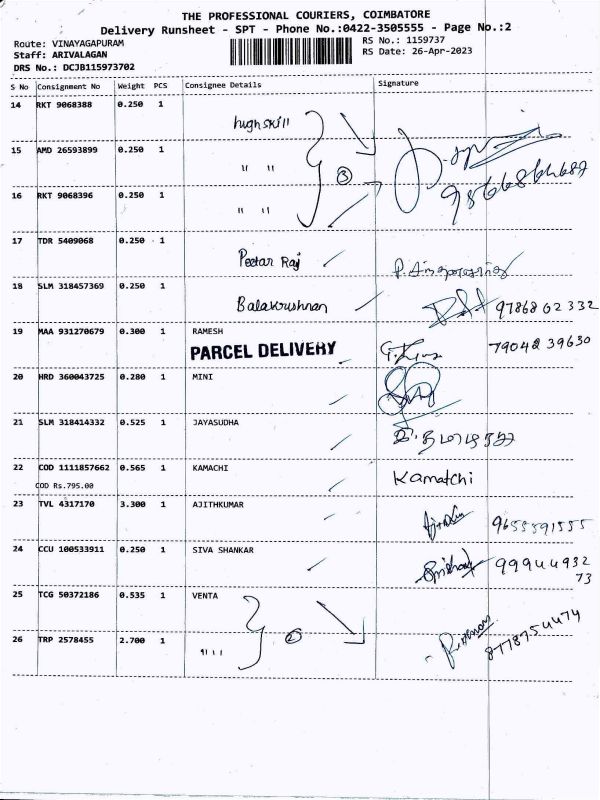 THE PROFESSIONAL COURIERS, COIMBATORE
Delivery Runsheet - SPT - Phone No.:0422-3505555 - Page No.:2
Route: VINAYAGAPURAM
Staff: ARIVALAGAN
DRS No.: DCJB115973702
RS No.: 1159737
RS Date: 26-Apr-2023
S No Consignment No Weight PCS Consignee Details Signature
14 RKT 9068388 0.250 1
hughskill
15 AMD 26593899 0.250 1
" "
③
16 RKT 9068396 0.250 1
" "
17 TDR 5409068 0.250 1
Peetar Raj
18 SLM 318457369 0.250 1
Balakrushnan 9786802332
19 MAA 931270679 0.300 1 RAMESH
PARCEL DELIVERY 7904239630
20 HRD 360043725 0.280 1 MINI
21 SLM 318414332 0.525 1 JAYASUDHA
22 COD 1111857662 0.565 1 KAMACHI Kamatchi
COD Rs.795.00
23 TVL 4317170 3.300 1 AJITHKUMAR
9655591555
24 CCU 100533911 0.250 1 SIVA SHANKAR
99944932
73
25 TCG 50372186 0.535 1 VENTA
②
26 TRP 2578455 2.700 1
" "
8778754474